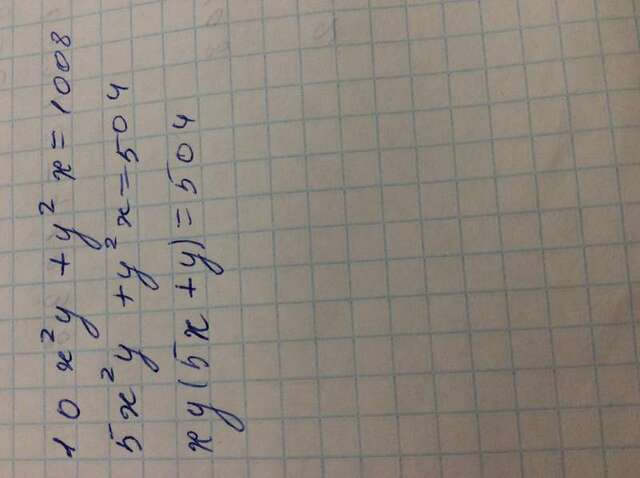 10 x²y + y² x = 1008
5x²y + y²x = 504
xy(5x + y) = 504